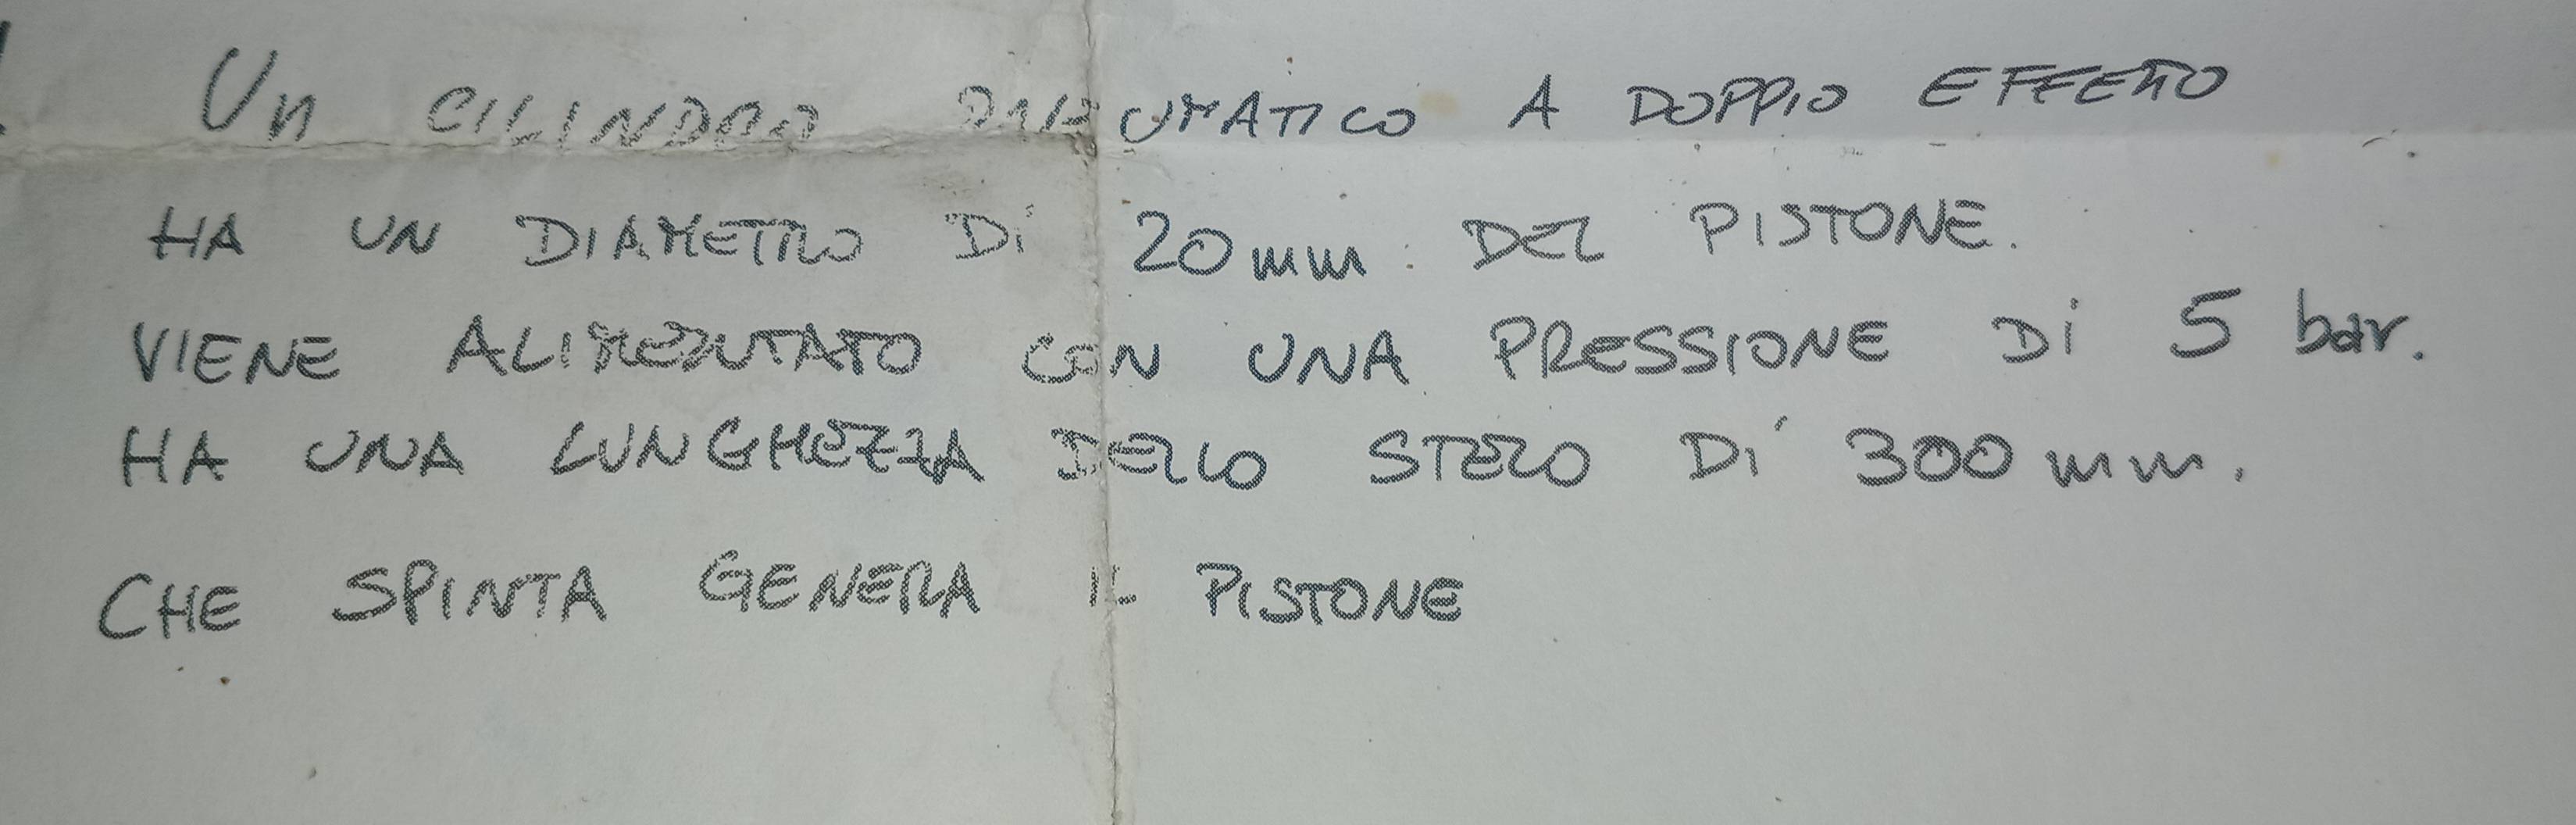 Un CILINDRO PNEUMATICO A DOPPIO EFFETTO
HA UN DIAMETRO Di 20mm DEL PISTONE.
VIENE ALIMENTATO CON UNA PRESSIONE Di 5 bar.
HA UNA LUNGHEZZA DELLO STELO Di 300 mm.
CHE SPINTA GENERA IL PISTONE